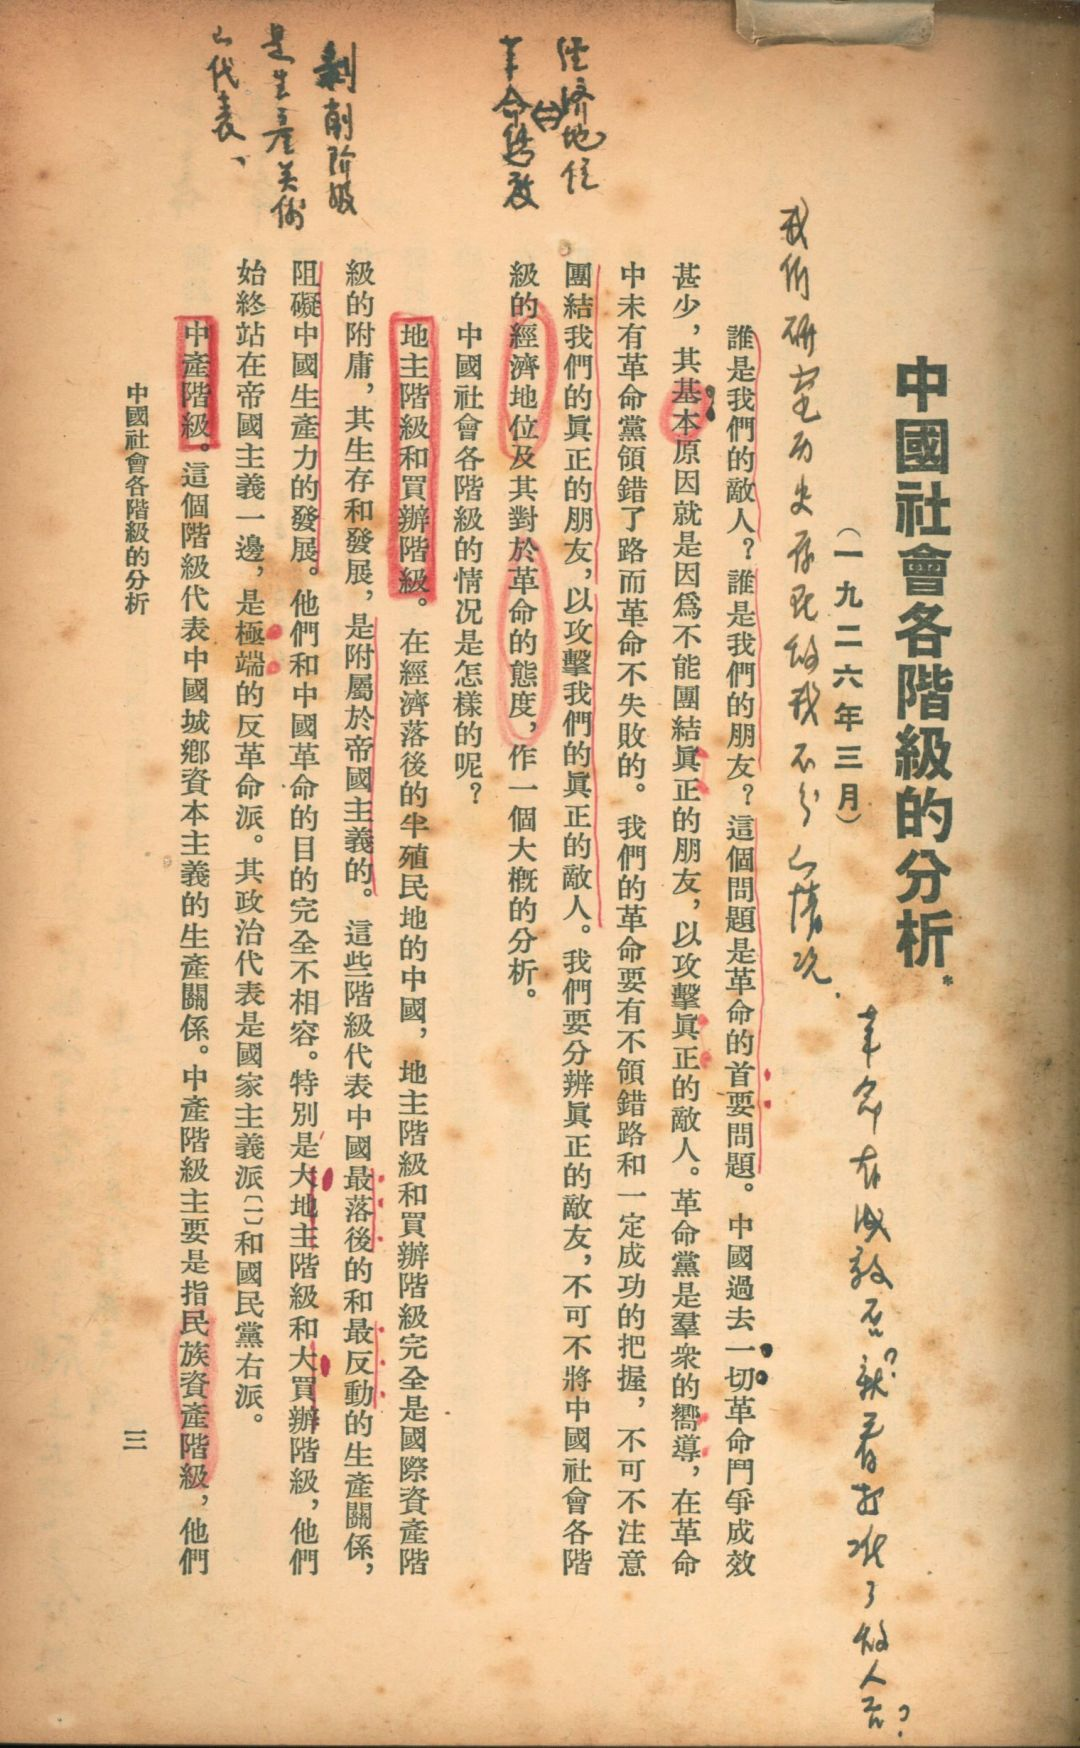 中國社會各階級的分析*
（一九二六年三月）
革命有成效否？就看打准了敌人否？
我们研究历史发现敌我不分的情况.
誰是我們的敵人？誰是我們的朋友？這個問題是革命的首要問題。中國過去一切革命鬥爭成效
甚少，其基本原因就是因爲不能團結眞正的朋友，以攻擊眞正的敵人。革命黨是羣衆的嚮導，在革命
中未有革命黨領錯了路而革命不失敗的。我們的革命要有不領錯路和一定成功的把握，不可不注意
團結我們的眞正的朋友，以攻擊我們的眞正的敵人。我們要分辨眞正的敵友，不可不將中國社會各階
級的經濟地位及其對於革命的態度，作一個大槪的分析。
中國社會各階級的情況是怎樣的呢？
地主階級和買辦階級。在經濟落後的半殖民地的中國，地主階級和買辦階級完全是國際資產階
級的附庸，其生存和發展，是附屬於帝國主義的。這些階級代表中國最落後的和最反動的生產關係，
阻礙中國生產力的發展。他們和中國革命的目的完全不相容。特別是大地主階級和大買辦階級，他們
始終站在帝國主義一邊，是極端的反革命派。其政治代表是國家主義派〔一〕和國民黨右派。
中產階級。這個階級代表中國城鄉資本主義的生產關係。中產階級主要是指民族資產階級，他們
经济地位
革命态度
剝削阶级
是生产关係
代表、
中國社會各階級的分析
三